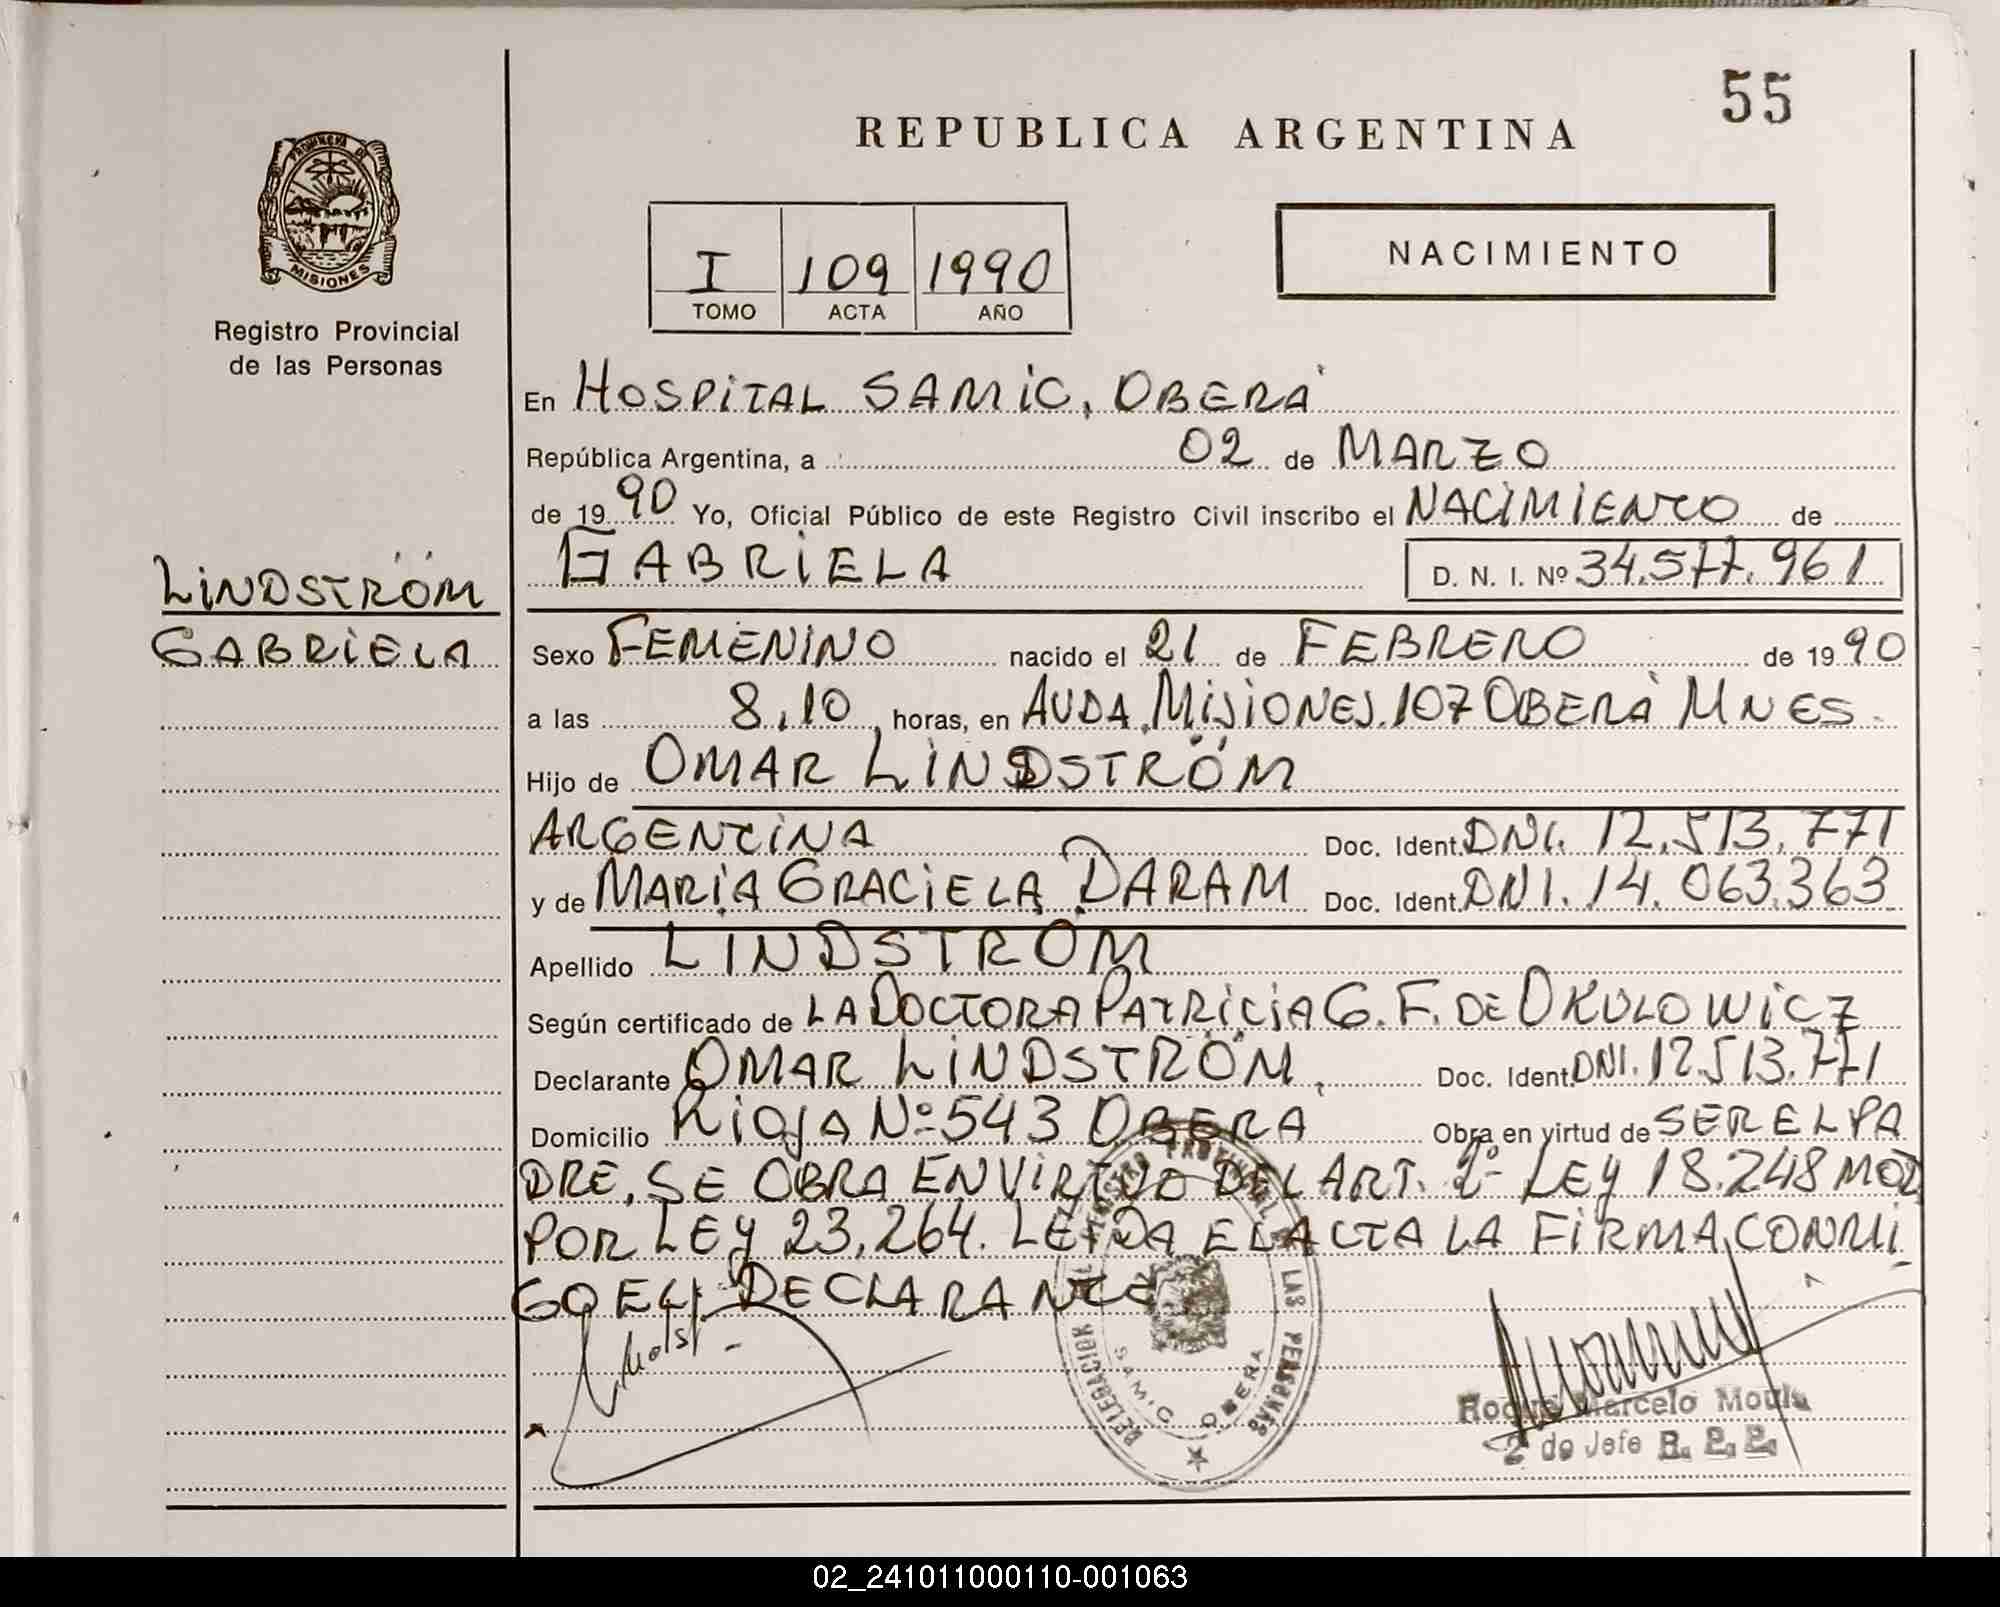 55
REPUBLICA ARGENTINA
PROVINCIA DE
MISIONES
Registro Provincial
de las Personas
I 109 1990
TOMO ACTA AÑO
NACIMIENTO
En HOSPITAL SAMIC, OBERÁ
República Argentina, a 02 de MARZO
de 1990 Yo, Oficial Público de este Registro Civil inscribo el NACIMIENTO de
GABRIELA D. N. I. Nº 34.577.961
LINDSTRÖM
GABRIELA
Sexo FEMENINO nacido el 21 de FEBRERO de 1990
a las 8,10 horas, en AVDA. MISIONES.107 OBERÁ MNES.
Hijo de OMAR LINDSTRÖM
ARGENTINA Doc. Ident. DNI. 12.513.771
y de MARIA GRACIELA DARAM Doc. Ident. DNI. 14.063.363
Apellido LINDSTROM
Según certificado de LA DOCTORA PATRICIA G. F. DE OKULOWICZ
Declarante OMAR LINDSTRÖM, Doc. Ident. DNI. 12.513.771
Domicilio RIOJA Nº 543 OBERÁ Obra en virtud de SER EL PA
DRE, SE OBRA EN VIRTUD DEL ART. 2º LEY 18.248 MOD
POR LEY 23.264. LEIDA EL ACTA LA FIRMA CONMI
GO EL DECLARANTE
DELEGACION DEL REGISTRO PROVINCIAL DE LAS PERSONAS
SAMIC OBERA
Roque Marcelo
2 do Jefe R. P. P.
02_241011000110-001063